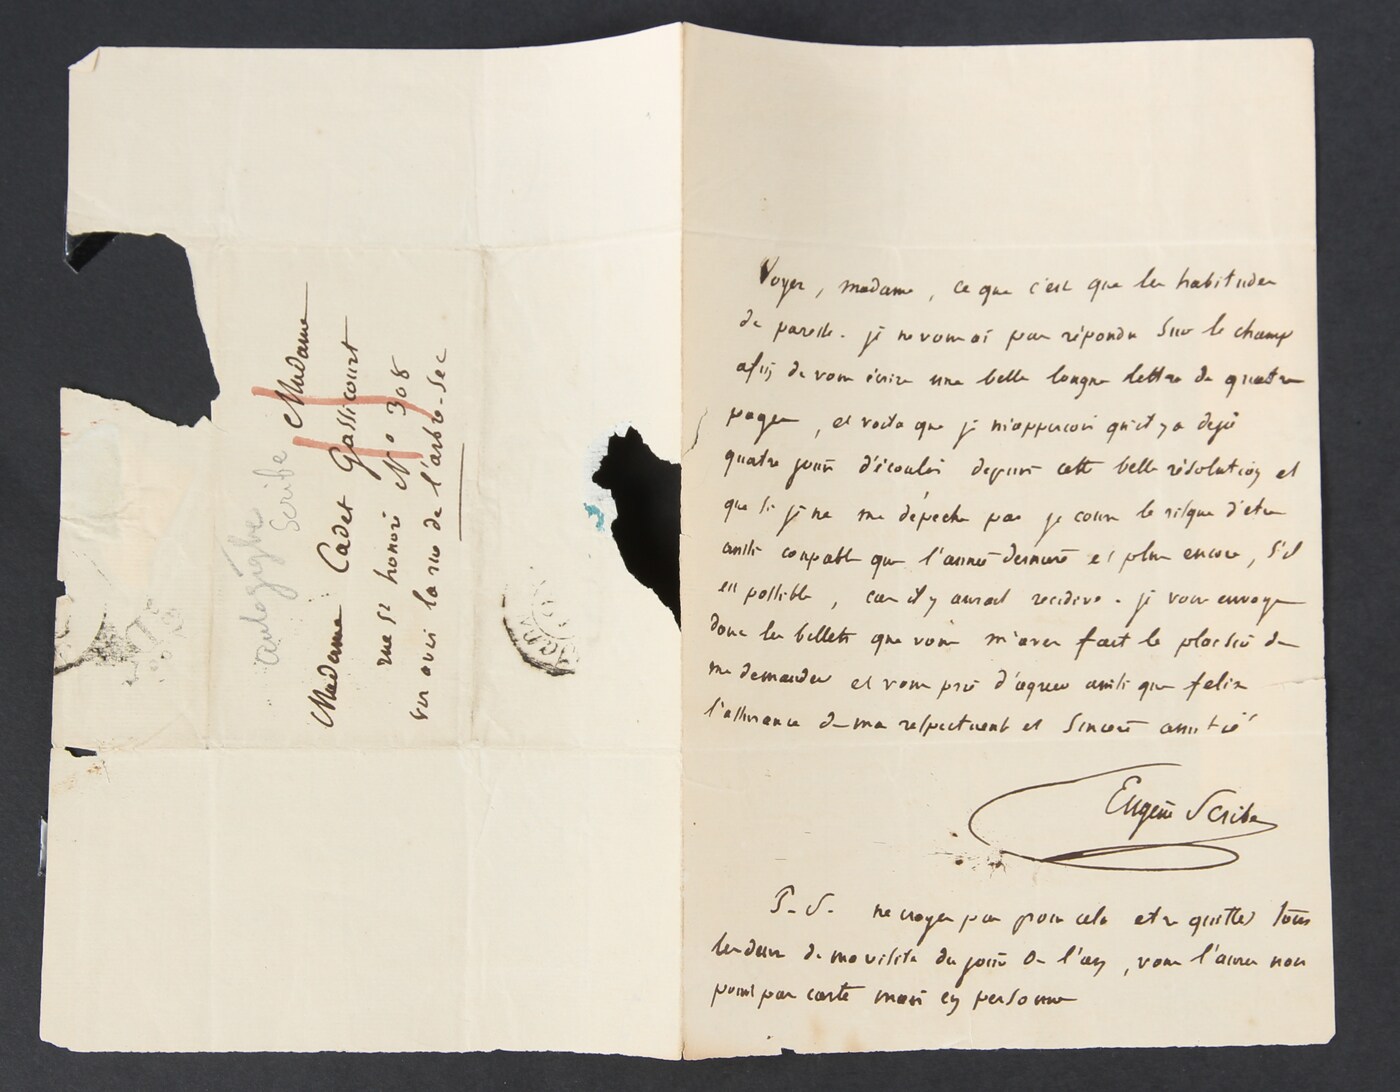 Madame
Madame Cadet Gassicourt
rue St honoré N° 308
vis avis la rue de l'arbre-sec
autographe
Scribe
Voyez, madame, ce que c'est que les habitudes
de paresse. je ne vous ai pas répondu sur le champ
afin de vous écrire une belle longue lettre de quatre
pages, et voila que je m'apperçois qu'il y a dejà
quatre jours d'écoulés depuis cette belle résolution et
que si je ne me dépêche pas je cours le risque d'etre
aussi coupable que l'année derniere et plus encore, s'il
est possible, car il y aurait recidive. je vous envoye
donc les billets que vous m'avez fait le plaisir de
me demander et vous prie d'agréer ainsi que felix
l'assurance de ma respectueuse et sincere amitié
Eugène Scribe
P.S. ne croyez pas pour cela etre quittes tous
les deux de ma visite du jour de l'an, vous l'aurez non
point par carte mais en personne